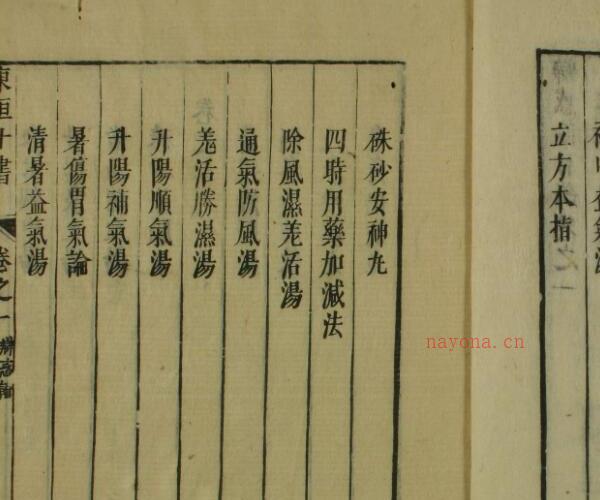 立方本指
硃砂安神丸
四時用藥加減法
除風濕羌活湯
通氣防風湯
羌活勝濕湯
升陽順氣湯
升陽補氣湯
暑傷胃氣論
清暑益氣湯
東垣十書 卷之一
nayona.cn